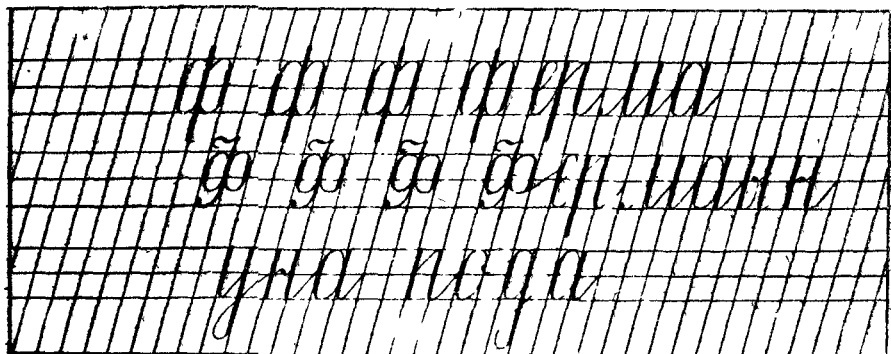 ф ф ф ферма
Ф Ф Ф Ферманн
уна